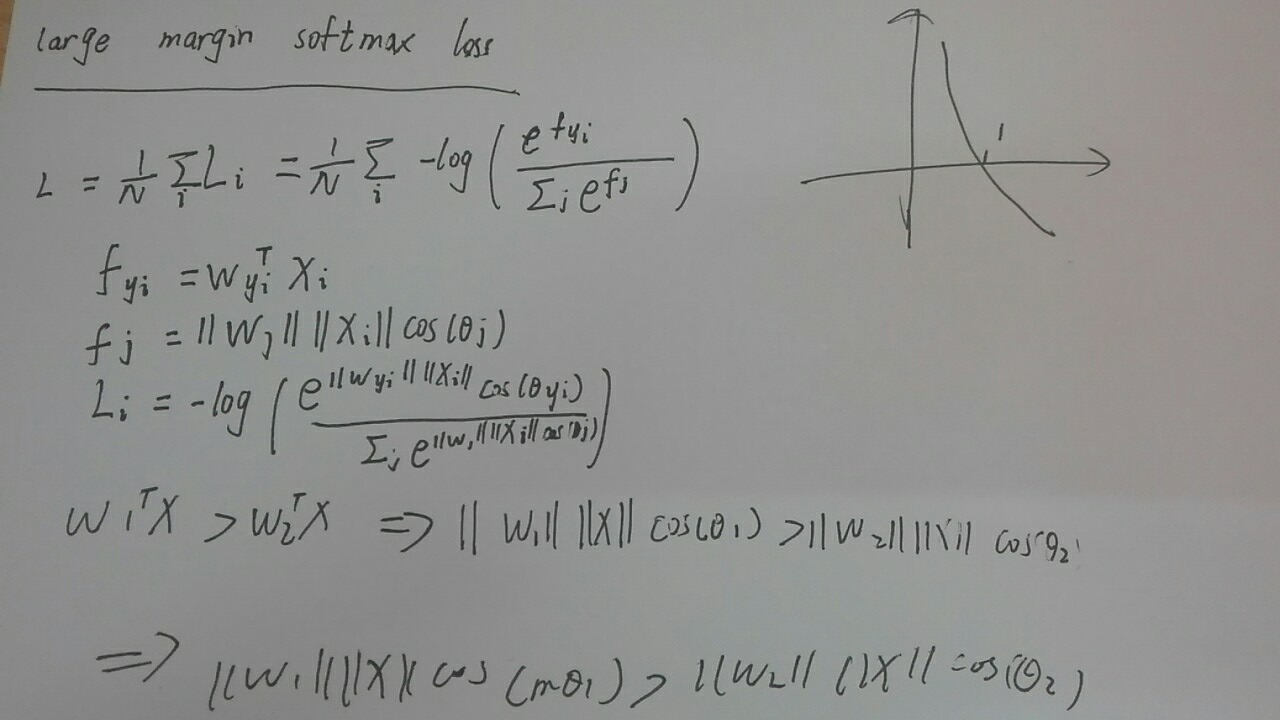 large margin softmax loss
L = 1/N Σ_i L_i = 1/N Σ_i -log( e^{f_{y_i}} / Σ_j e^{f_j} )
1
f_{y_i} = W_{y_i}^T X_i
f_j = ||W_j|| ||X_i|| cos(θ_j)
L_i = -log( e^{||W_{y_i}|| ||X_i|| cos(θ_{y_i})} / Σ_j e^{||W_j|| ||X_i|| cos(θ_j)} )
W_1^T X > W_2^T X => ||W_1|| ||X|| cos(θ_1) > ||W_2|| ||X|| cos(θ_2)
=> ||W_1|| ||X|| cos(mθ_1) > ||W_2|| ||X|| cos(θ_2)